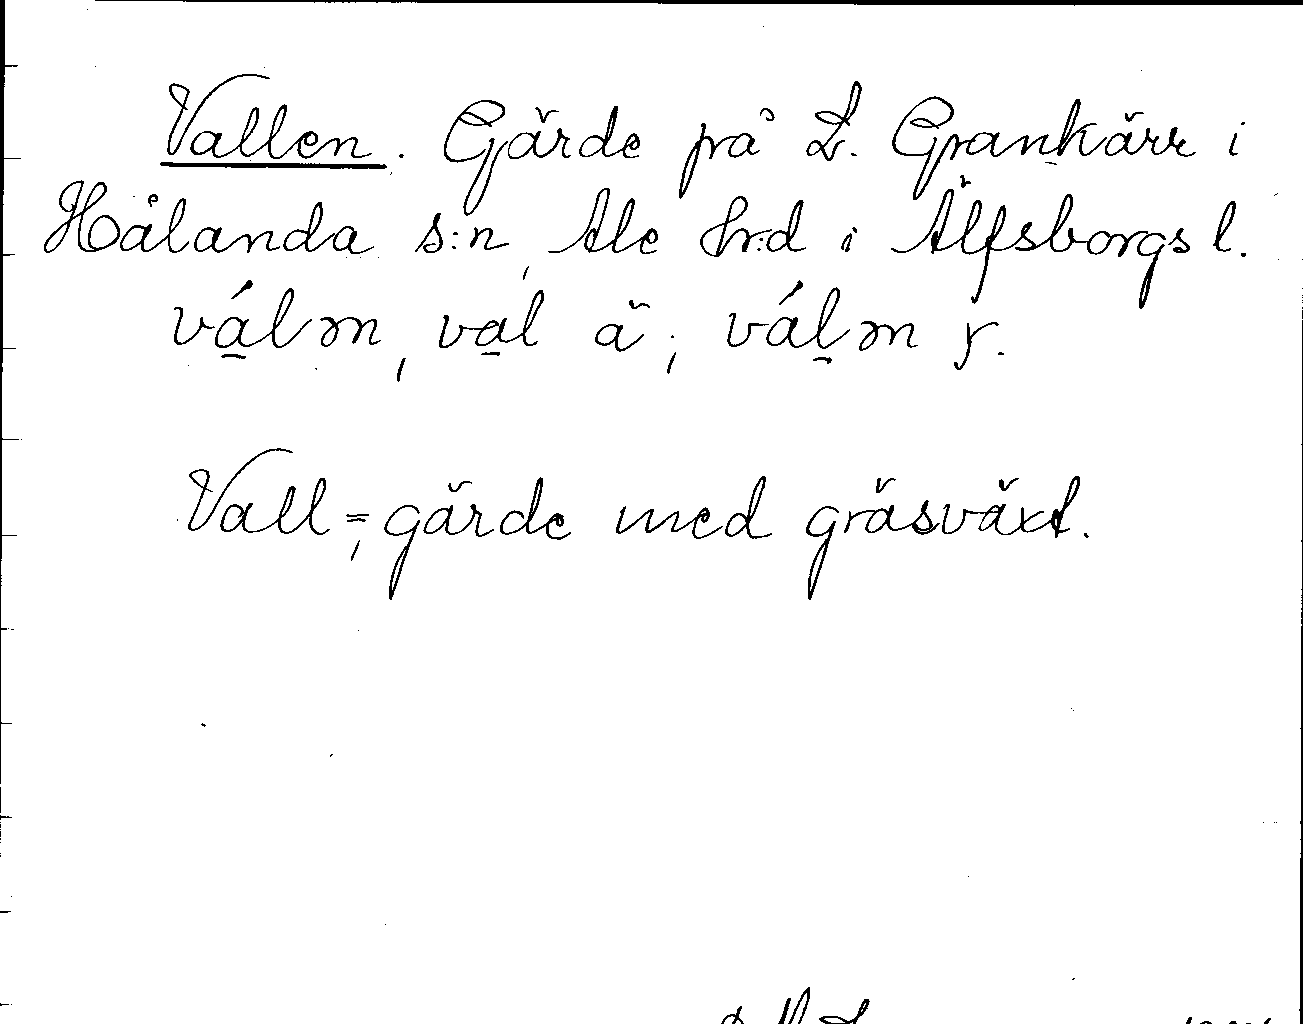 Vallen. Gärde på L. Grankärr i
Hålanda s:n, Ale hrd i Älfsborgs l.
válm, val ä; válm r.
Vall = gärde med gräsväxt.